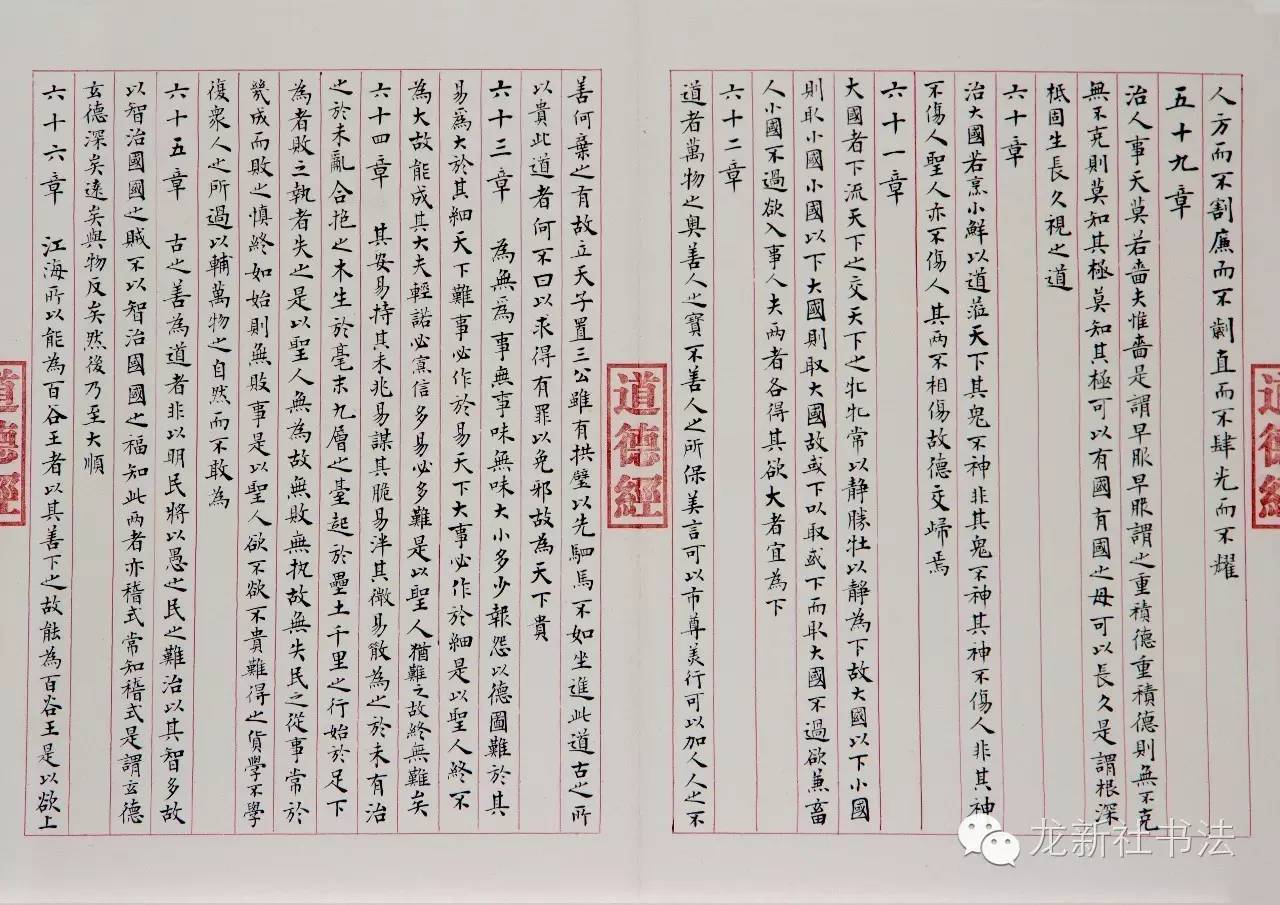 人方而不割廉而不劌直而不肆光而不耀
五十九章
治人事天莫若嗇夫惟嗇是謂早服早服謂之重積德重積德則無不克
無不克則莫知其極莫知其極可以有國有國之母可以長久是謂根深
柢固生長久視之道
六十章
治大國若烹小鮮以道蒞天下其鬼不神非其鬼不神其神不傷人非其神
不傷人聖人亦不傷人其兩不相傷故德交歸焉
六十一章
大國者下流天下之交天下之牝牝常以靜勝牡以靜為下故大國以下小國
則取小國小國以下大國則取大國故或下以取或下而取大國不過欲兼畜
人小國不過欲入事人夫兩者各得其欲大者宜為下
六十二章
道者萬物之奥善人之寶不善人之所保美言可以市尊美行可以加人人之不
善何棄之有故立天子置三公雖有拱璧以先駟馬不如坐進此道古之所
以貴此道者何不曰以求得有罪以免邪故為天下貴
六十三章　為無爲事無事味無味大小多少報怨以德圖難於其
易爲大於其細天下難事必作於易天下大事必作於細是以聖人終不
為大故能成其大夫輕諾必寡信多易必多難是以聖人猶難之故終無難矣
六十四章　其安易持其未兆易謀其脆易泮其微易散為之於未有治
之於未亂合抱之木生於毫末九層之臺起於壘土千里之行始於足下
為者敗之執者失之是以聖人無為故無敗無执故無失民之從事常於
幾成而敗之慎終如始則無敗事是以聖人欲不欲不貴難得之貨學不學
復衆人之所過以輔萬物之自然而不敢為
六十五章　古之善為道者非以明民將以愚之民之難治以其智多故
以智治國國之賊不以智治國國之福知此两者亦稽式常知稽式是謂玄德
玄德深矣遠矣與物反矣然後乃至大順
六十六章　江海所以能為百谷王者以其善下之故能為百谷王是以欲上
道德經
道德經
道德經
龙新社书法